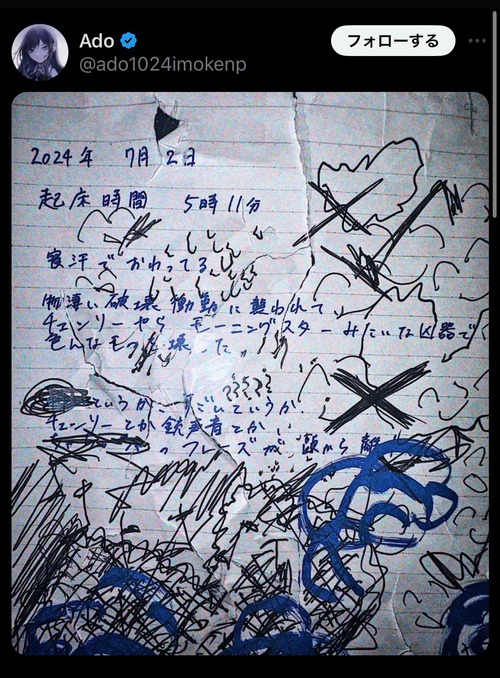 Ado
フォローする
@ado1024imokenp
2024年 7月2日
起床時間 5時11分
寝汗でおわってる
物凄い破壊衝動に襲われて、
チェンソーやら モーニングスターみたいな凶器で
色んなモノを壊した。
というか、すごいというか、
チェンソーとか銃声音とか、
フレーズが 頭から離